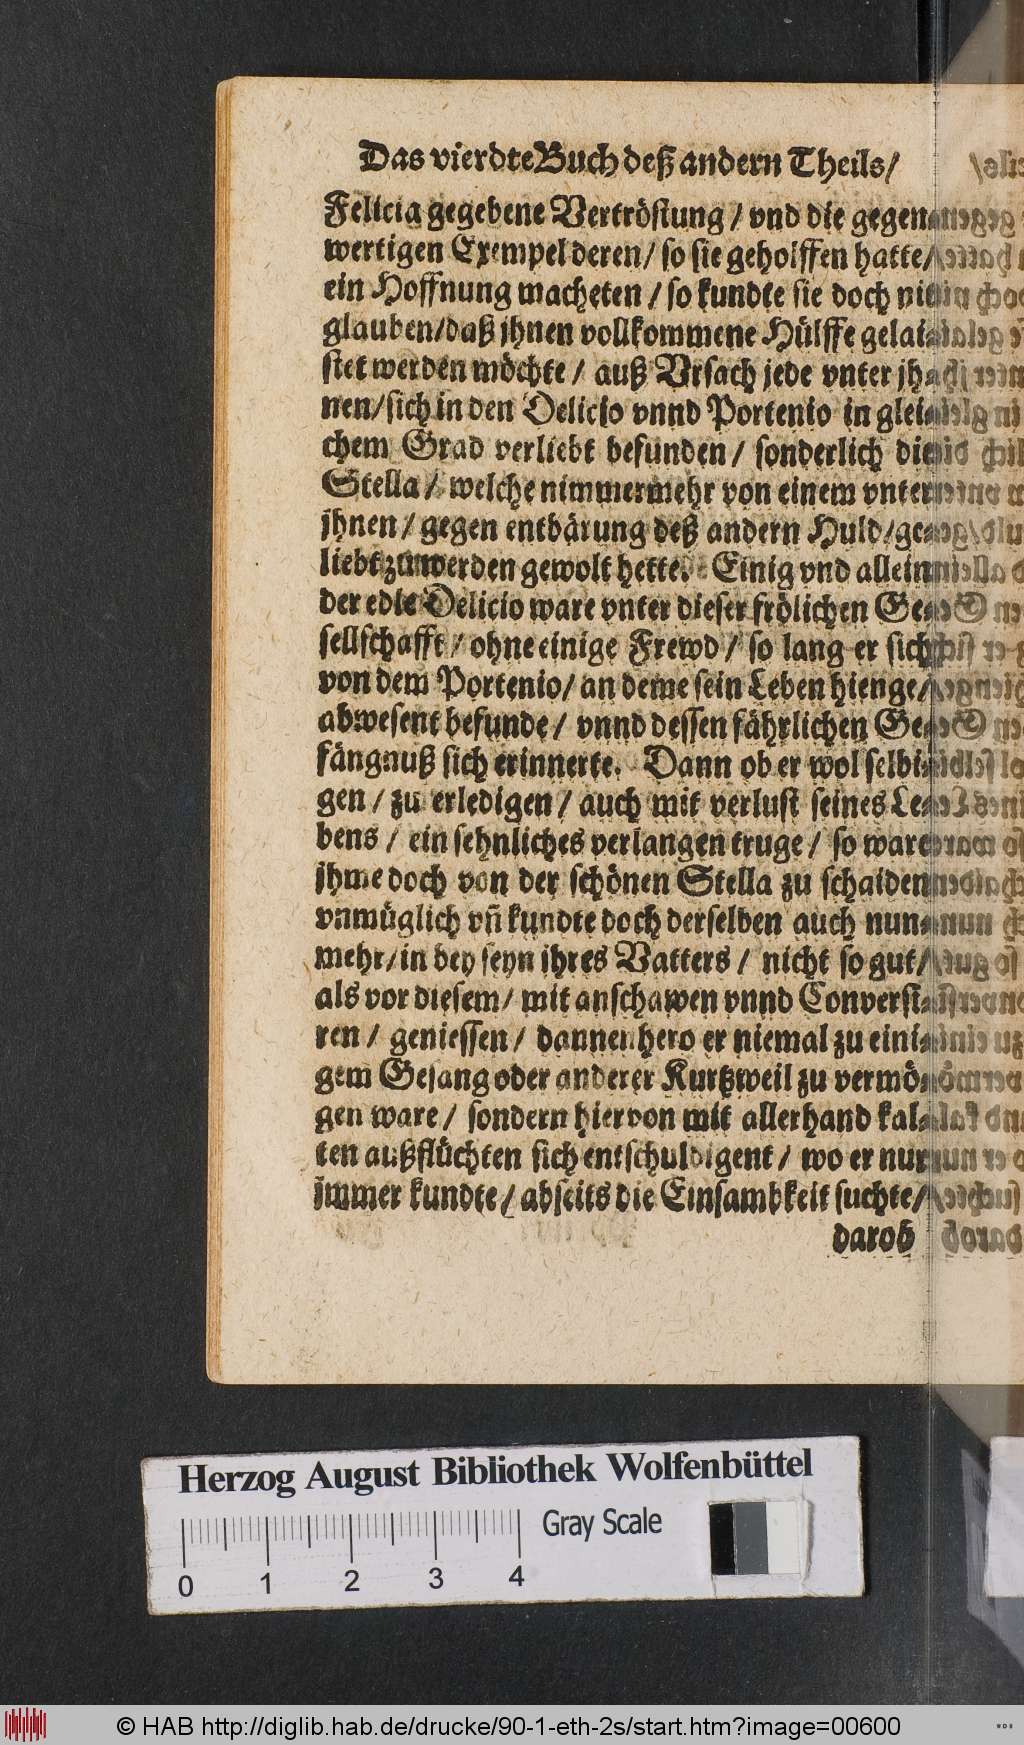 Das vierdte Buch deß andern Theils/
Felicia gegebene Vertröstung / vnd die gegen-
wertigen Exempel deren / so sie geholffen hatte/
ein Hoffnung macheten / so kundte sie doch nit
glauben/daß jhnen vollkommene Hülffe gelai-
stet werden möchte / auß Vrsach jede vnter jh-
nen/sich in den Delicio vnnd Portenio in glei-
chem Grad verliebt befunden / sonderlich die
Stella / welche nimmermehr von einem vnter
jhnen / gegen entbärung deß andern Huld/ge-
liebt zu werden gewolt hette. Einig vnd allein
der edle Delicio ware vnter dieser frölichen Ge-
sellschafft / ohne einige Frewd / so lang er sich
von dem Portenio/ an deme sein Leben hienge/
abwesent befunde / vnnd dessen fährlichen Ge-
fängnuß sich erinnerte. Dann ob er wol selbi-
gen / zu erledigen / auch mit verlust seines Le-
bens / ein sehnliches verlangen truge / so ware
jhme doch von der schönen Stella zu schaiden
vnmüglich vñ kundte doch derselben auch nun-
mehr/in bey seyn jhres Vatters / nicht so gut/
als vor diesem/ mit anschawen vnnd Conversi-
ren / geniessen / dannenhero er niemal zu eini-
gem Gesang oder anderer Kurtzweil zu vermö-
gen ware / sondern hiervon mit allerhand kal-
ten außflüchten sich entschuldigent / wo er nur
jmmer kundte / abseits die Einsambkeit suchte/
darob
Herzog August Bibliothek Wolfenbüttel
Gray Scale
0 1 2 3 4
© HAB http://diglib.hab.de/drucke/90-1-eth-2s/start.htm?image=00600